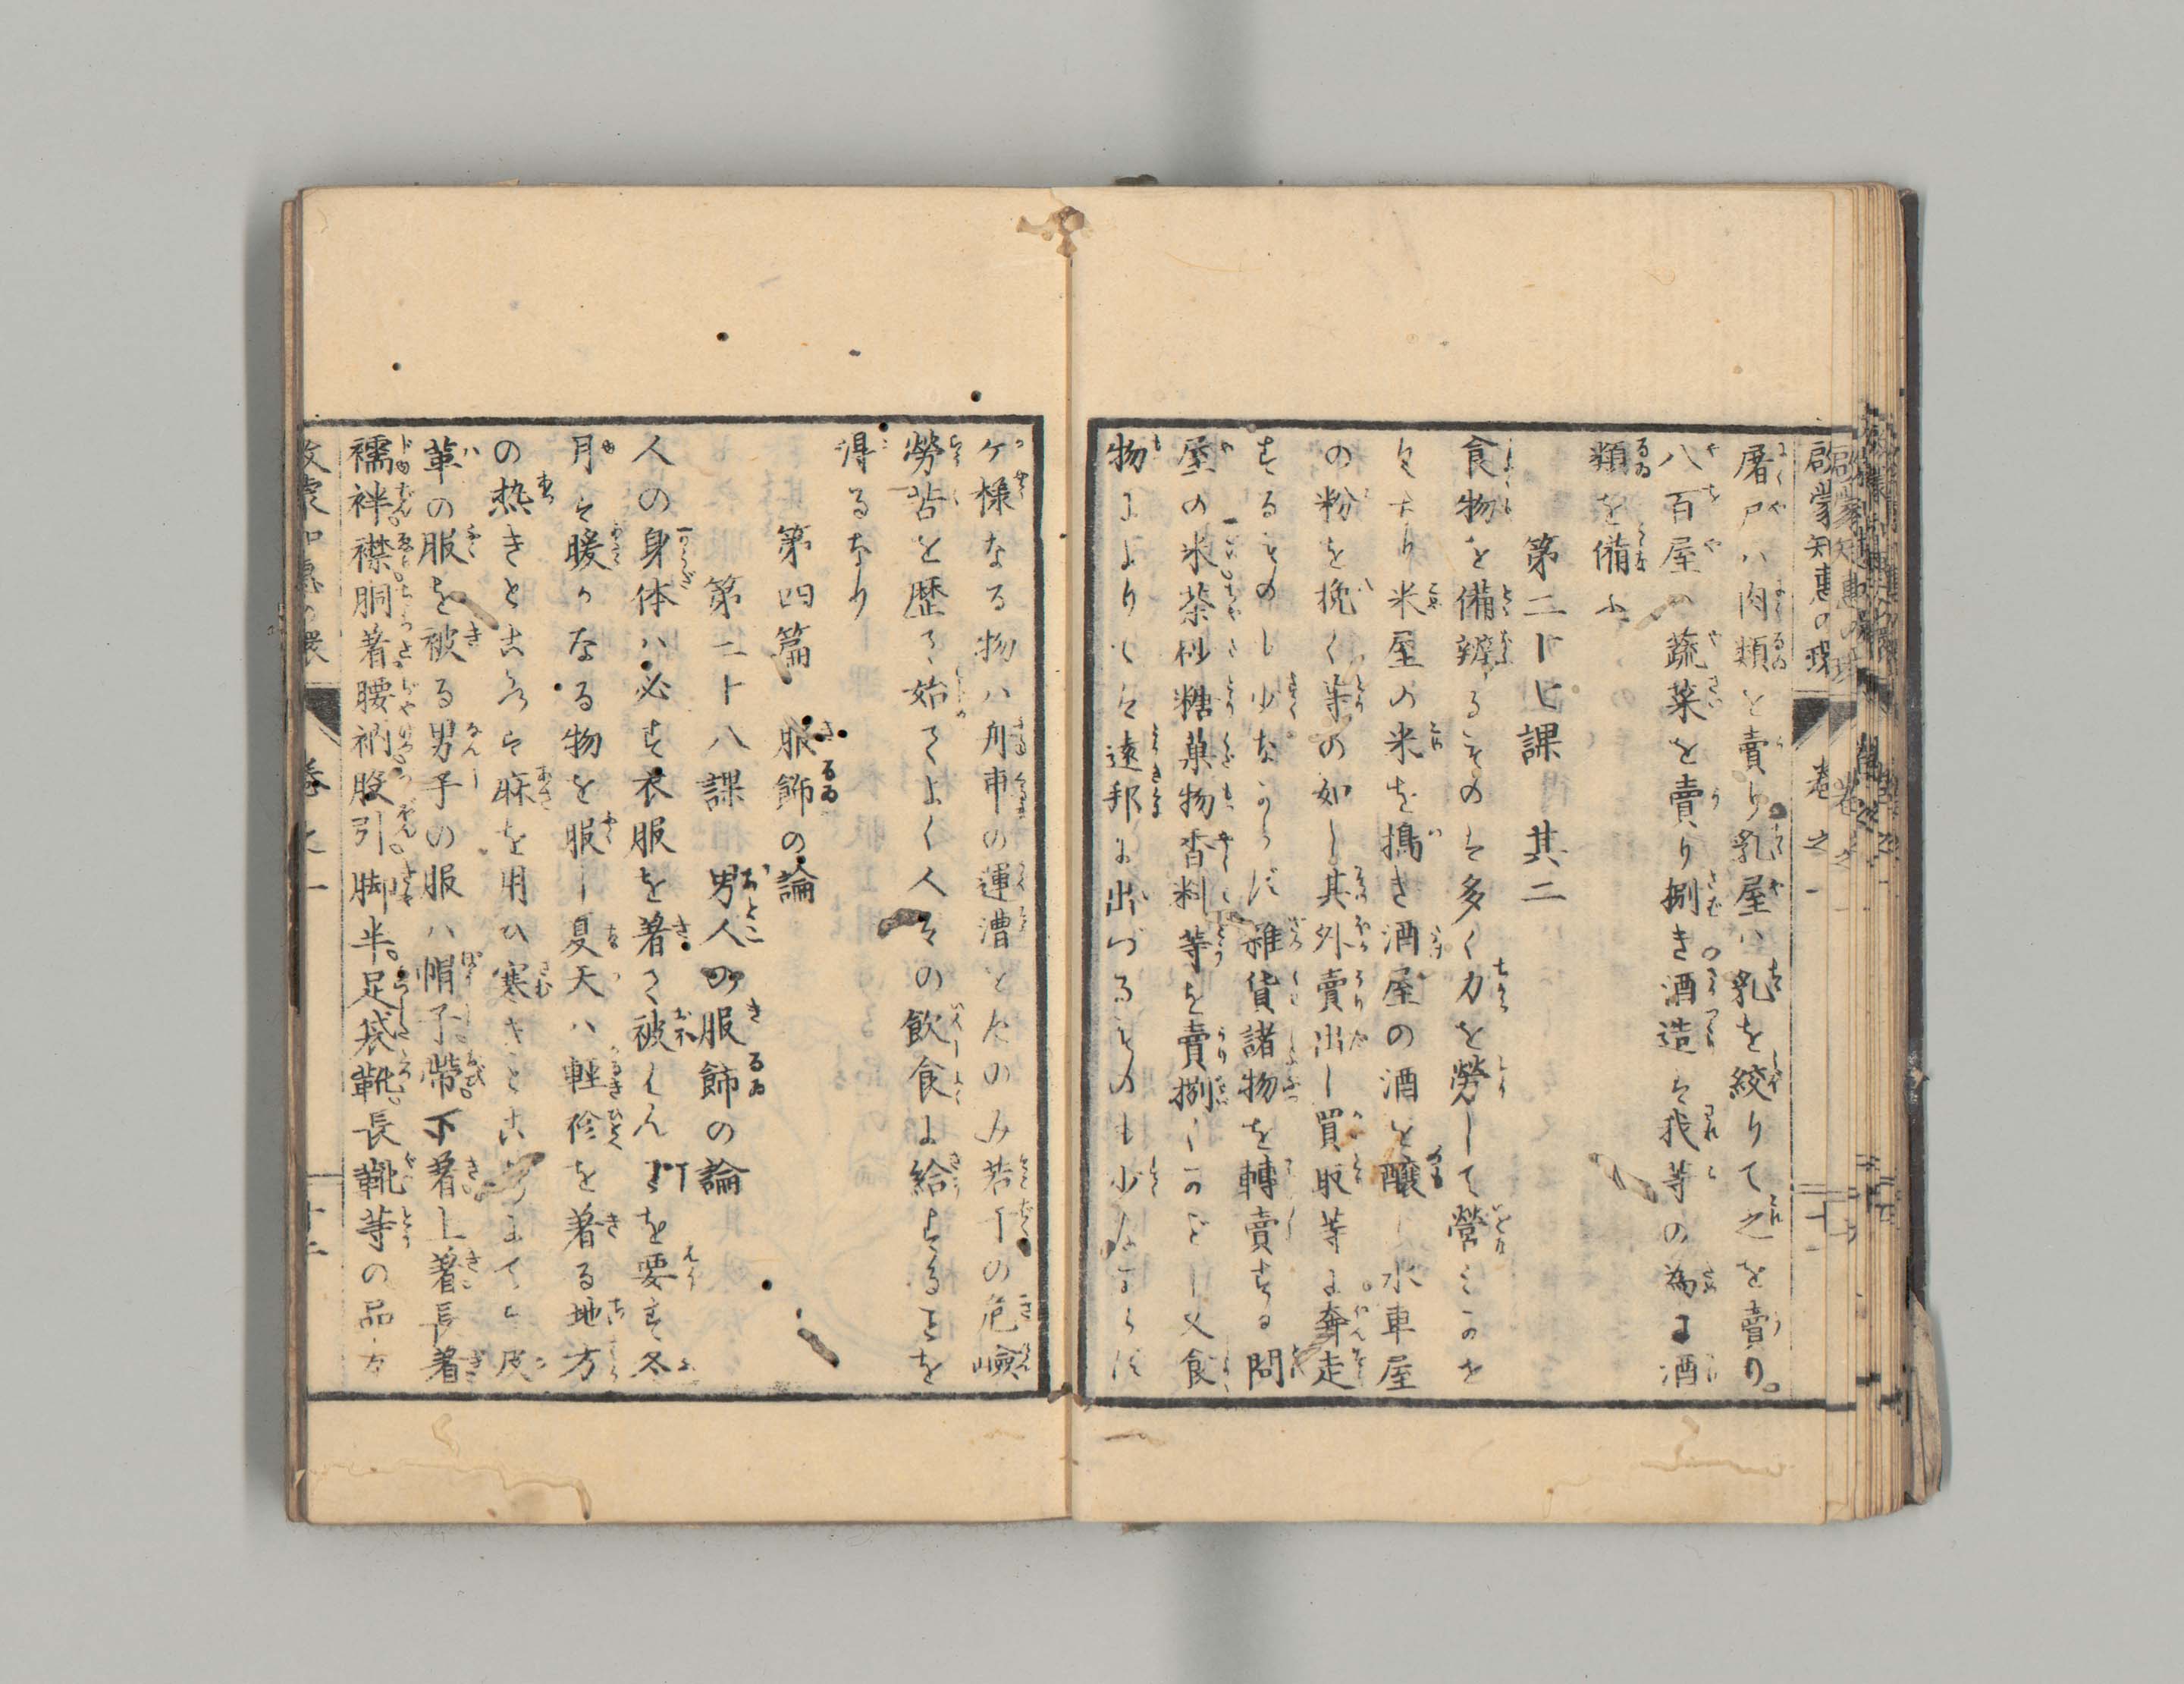 啟蒙知惠の環 巻之一
屠戸ハ肉類を賣り乳屋ハ乳を絞りて之を賣り。
八百屋の蔬菜を賣り捌き酒造は我等の為に酒
類を備ふ
第二十七課 其二
食物を備辨するものは多く力を勞して營むことを
米屋の米を搗き酒屋の酒を醸し水車屋
の粉を挽く等の如し其外賣出し買取等に奔走
するもの少なからず雑貨諸物を轉賣する問
屋の米茶砂糖菓物香料等を賣捌くごとし又食
物によりては遠邦に出づるものも少なからず
ケ様なる物ハ舟車の運漕とその み若干の危嶮
勞苦を歴て始てよく人々の飲食に給することを
得るなり
第四篇 服飾の論
第二十八課 男人の服飾の論
人の身体ハ必ず衣服を著て被くんことを要す冬
月は暖かなる物を服し夏天ハ軽袗を着る地方
の熱きところは麻を用ひ寒きところにては皮
革の服を被る男子の服ハ帽子帶下着上着長着
襦袢襟胴着腰衲股引脚半。足袋靴長靴等の品
啟蒙知惠の環 巻之一